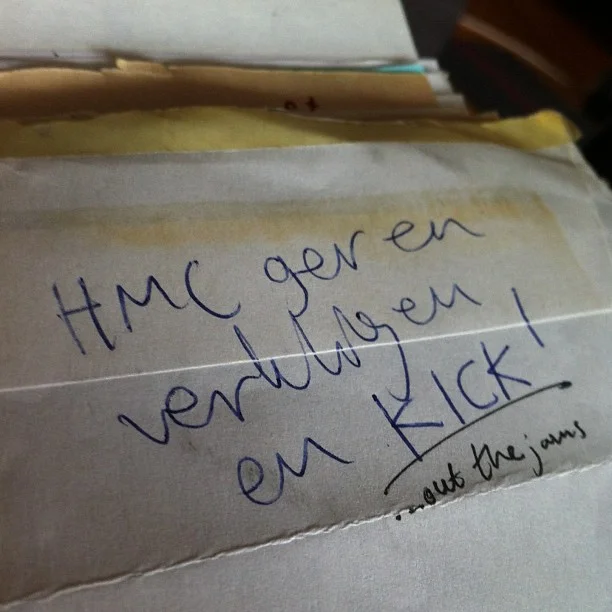 HMC ger en
en KICK!
...out the jams